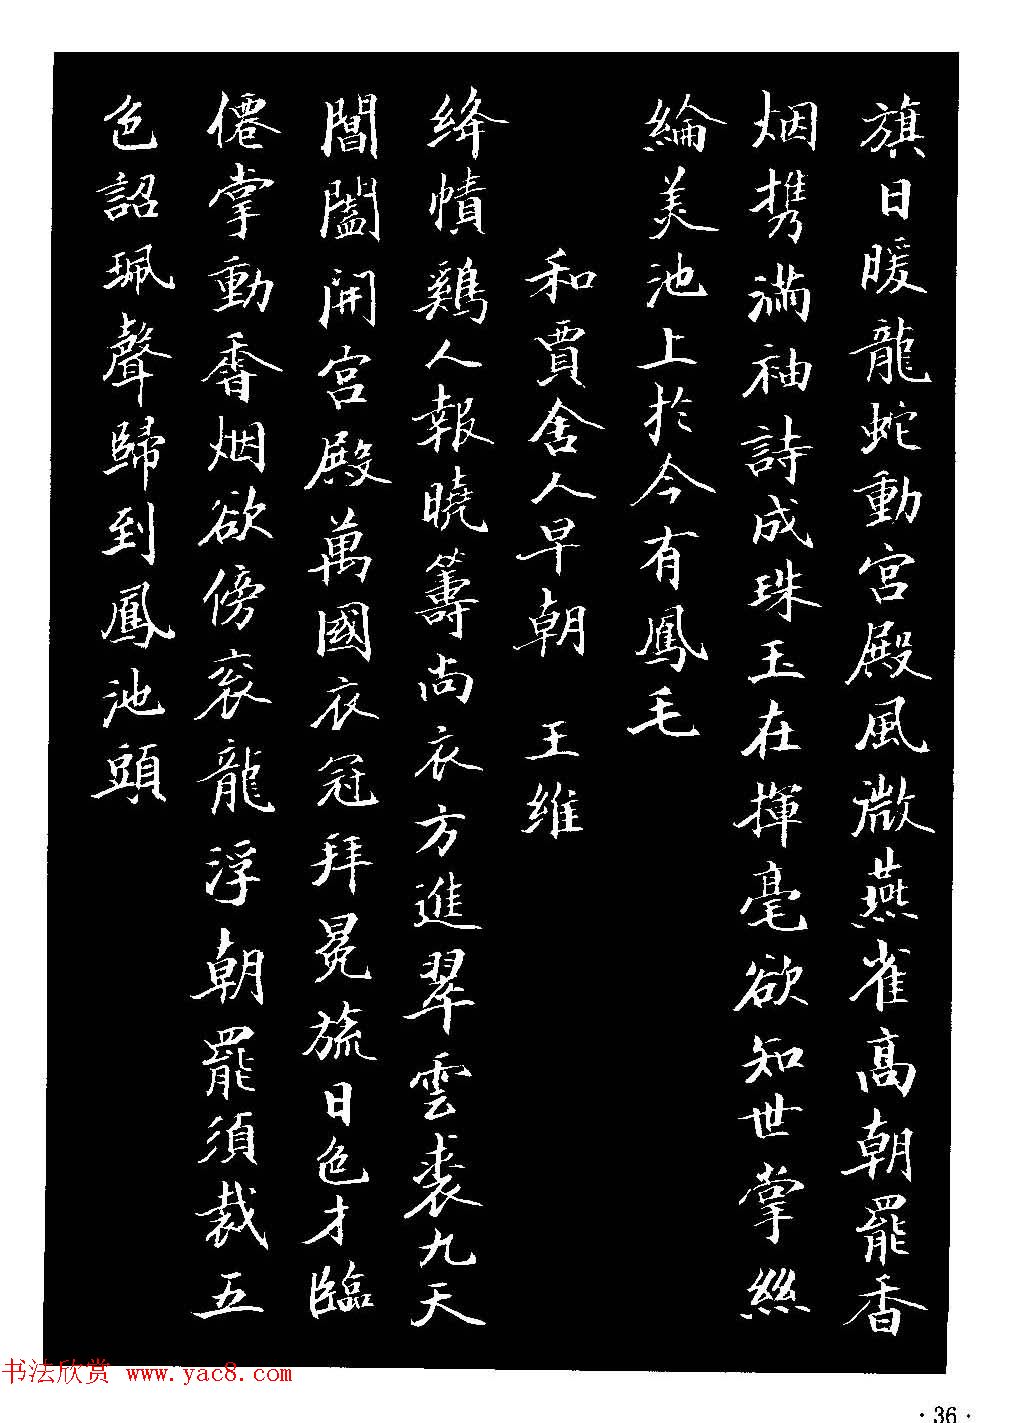 旗日暖龍蛇動宮殿風微燕雀高朝罷香
烟携滿袖詩成珠玉在揮毫欲知世掌絲
綸美池上於今有鳳毛
和賈舍人早朝 王維
絳幘鷄人報曉籌尚衣方進翠雲裘九天
閶闔開宮殿萬國衣冠拜冕旒日色才臨
僊掌動香烟欲傍衮龍浮朝罷須裁五
色詔珮聲歸到鳳池頭
书法欣赏 www.yac8.com
·36·